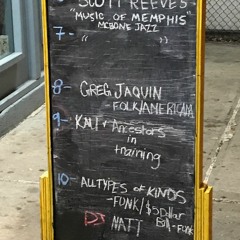 SCOTT REEVES
"MUSIC OF MEMPHIS"
MCBONE JAZZ
7 - " "
8 - GREG JAQUIN
- FOLK/AMERICANA
9 - KALI & Ancestors
in
training
10 - ALL TYPES OF KINDS
- FUNK/$5 Dollar
Bill - Funk
DJ NATT